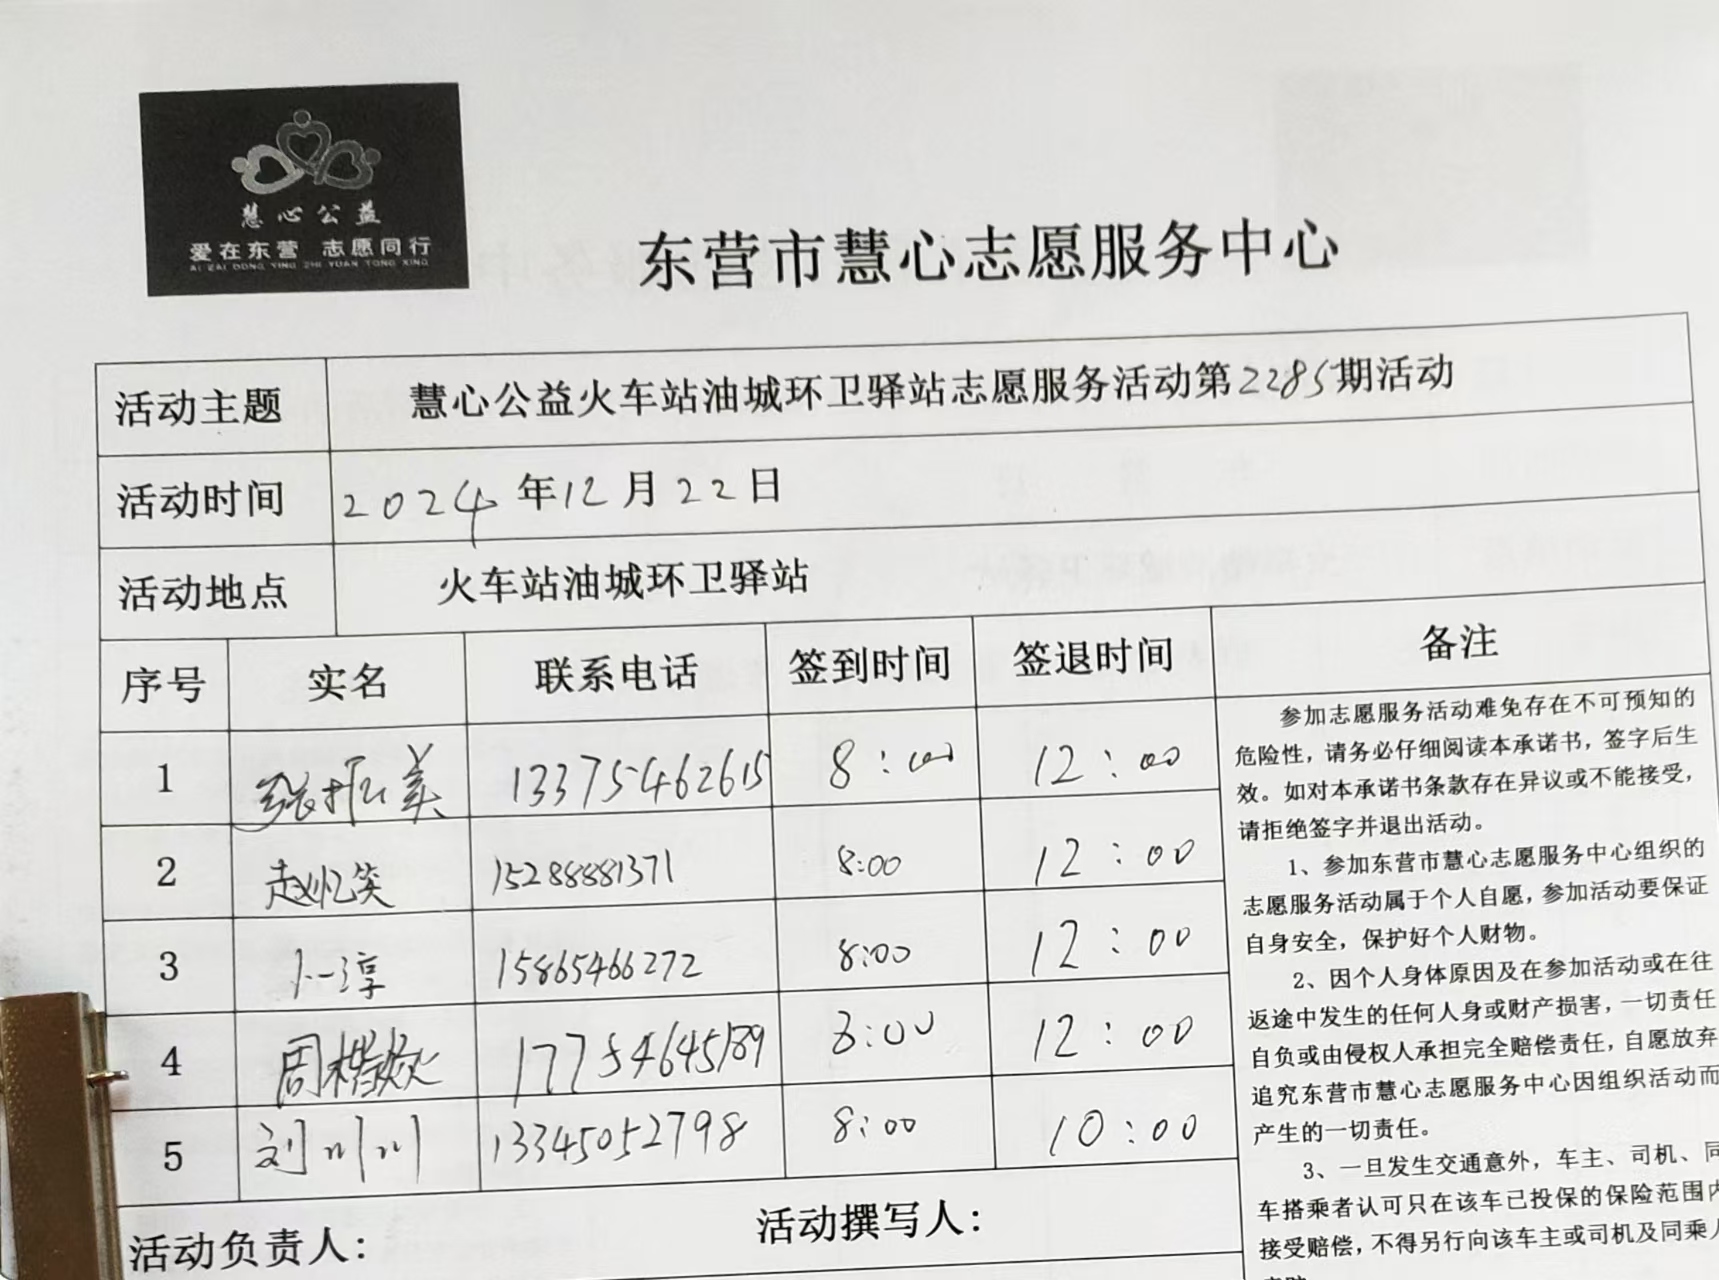 慧心公益
爱在东营 志愿同行
AI ZAI DONG YING ZHI YUAN TONG XING
东营市慧心志愿服务中心
活动主题 慧心公益火车站油城环卫驿站志愿服务活动第2285期活动
活动时间 2024年12月22日
活动地点 火车站油城环卫驿站
序号 实名 联系电话 签到时间 签退时间 备注
1 张振美 13375462615 8:00 12:00
2 赵忆笑 15288881371 8:00 12:00
3 卜一淳 15865466272 8:00 12:00
4 周楷焱 17754645189 8:00 12:00
5 刘川川 13345052798 8:00 10:00
活动负责人: 活动撰写人:
参加志愿服务活动难免存在不可预知的
危险性，请务必仔细阅读本承诺书，签字后生
效。如对本承诺书条款存在异议或不能接受，
请拒绝签字并退出活动。
1、参加东营市慧心志愿服务中心组织的
志愿服务活动属于个人自愿，参加活动要保证
自身安全，保护好个人财物。
2、因个人身体原因及在参加活动或在往
返途中发生的任何人身或财产损害，一切责任
自负或由侵权人承担完全赔偿责任，自愿放弃
追究东营市慧心志愿服务中心因组织活动而
产生的一切责任。
3、一旦发生交通意外，车主、司机、同
车搭乘者认可只在该车已投保的保险范围内
接受赔偿，不得另行向该车主或司机及同乘人